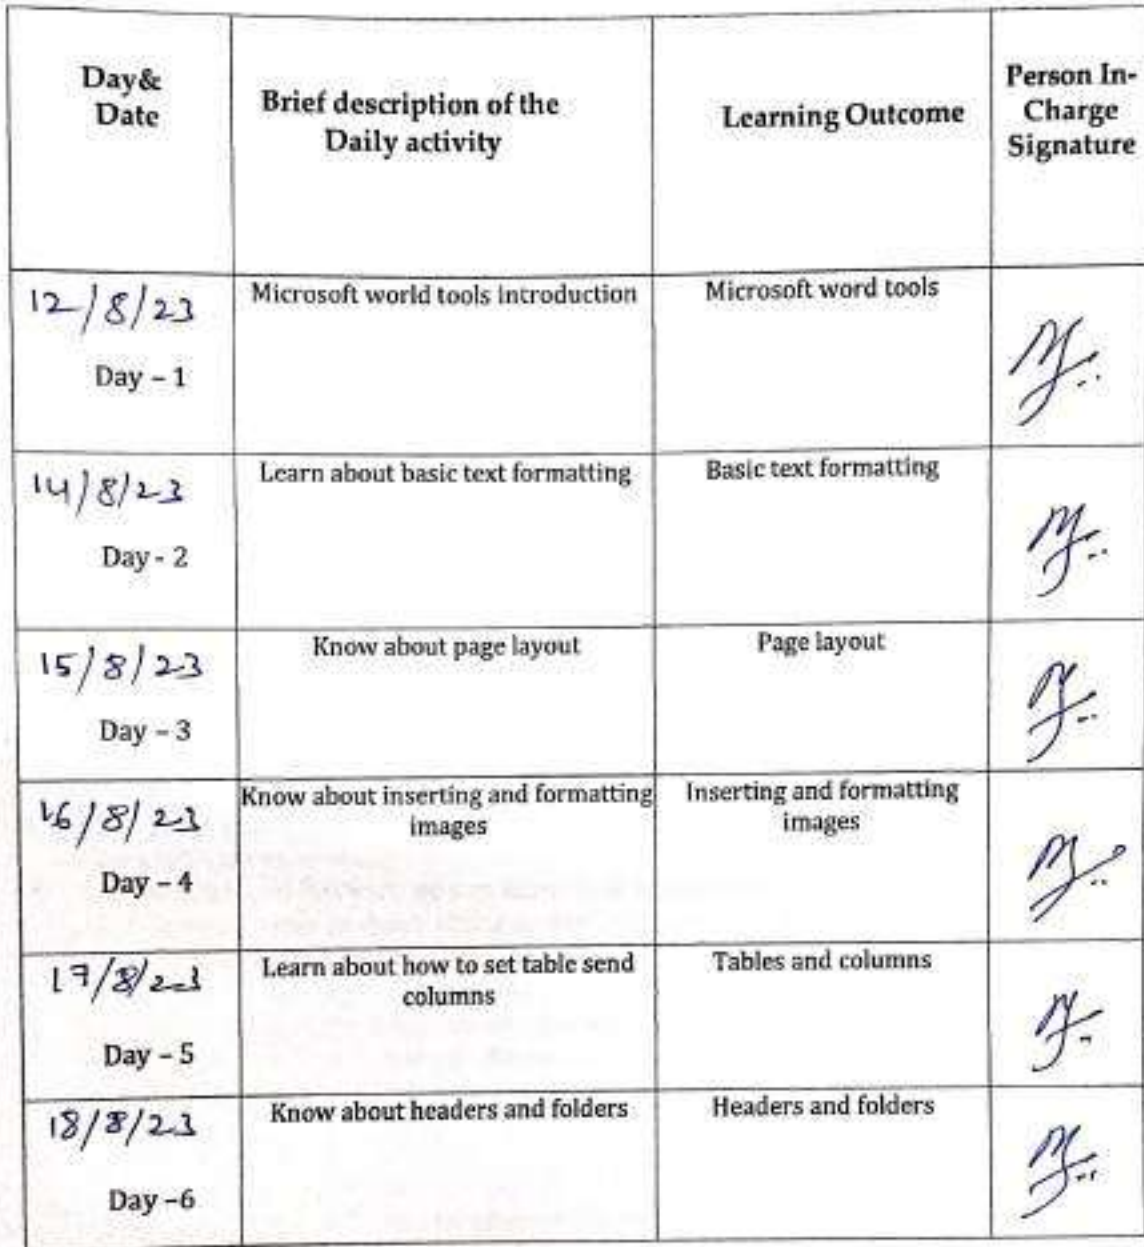 Day&
Date
Brief description of the
Daily activity
Learning Outcome
Person In-
Charge
Signature
12/8/23
Day – 1
Microsoft world tools introduction
Microsoft word tools
14/8/23
Day - 2
Learn about basic text formatting
Basic text formatting
15/8/23
Day – 3
Know about page layout
Page layout
16/8/23
Day – 4
Know about inserting and formatting
images
Inserting and formatting
images
17/8/23
Day – 5
Learn about how to set table send
columns
Tables and columns
18/8/23
Day –6
Know about headers and folders
Headers and folders